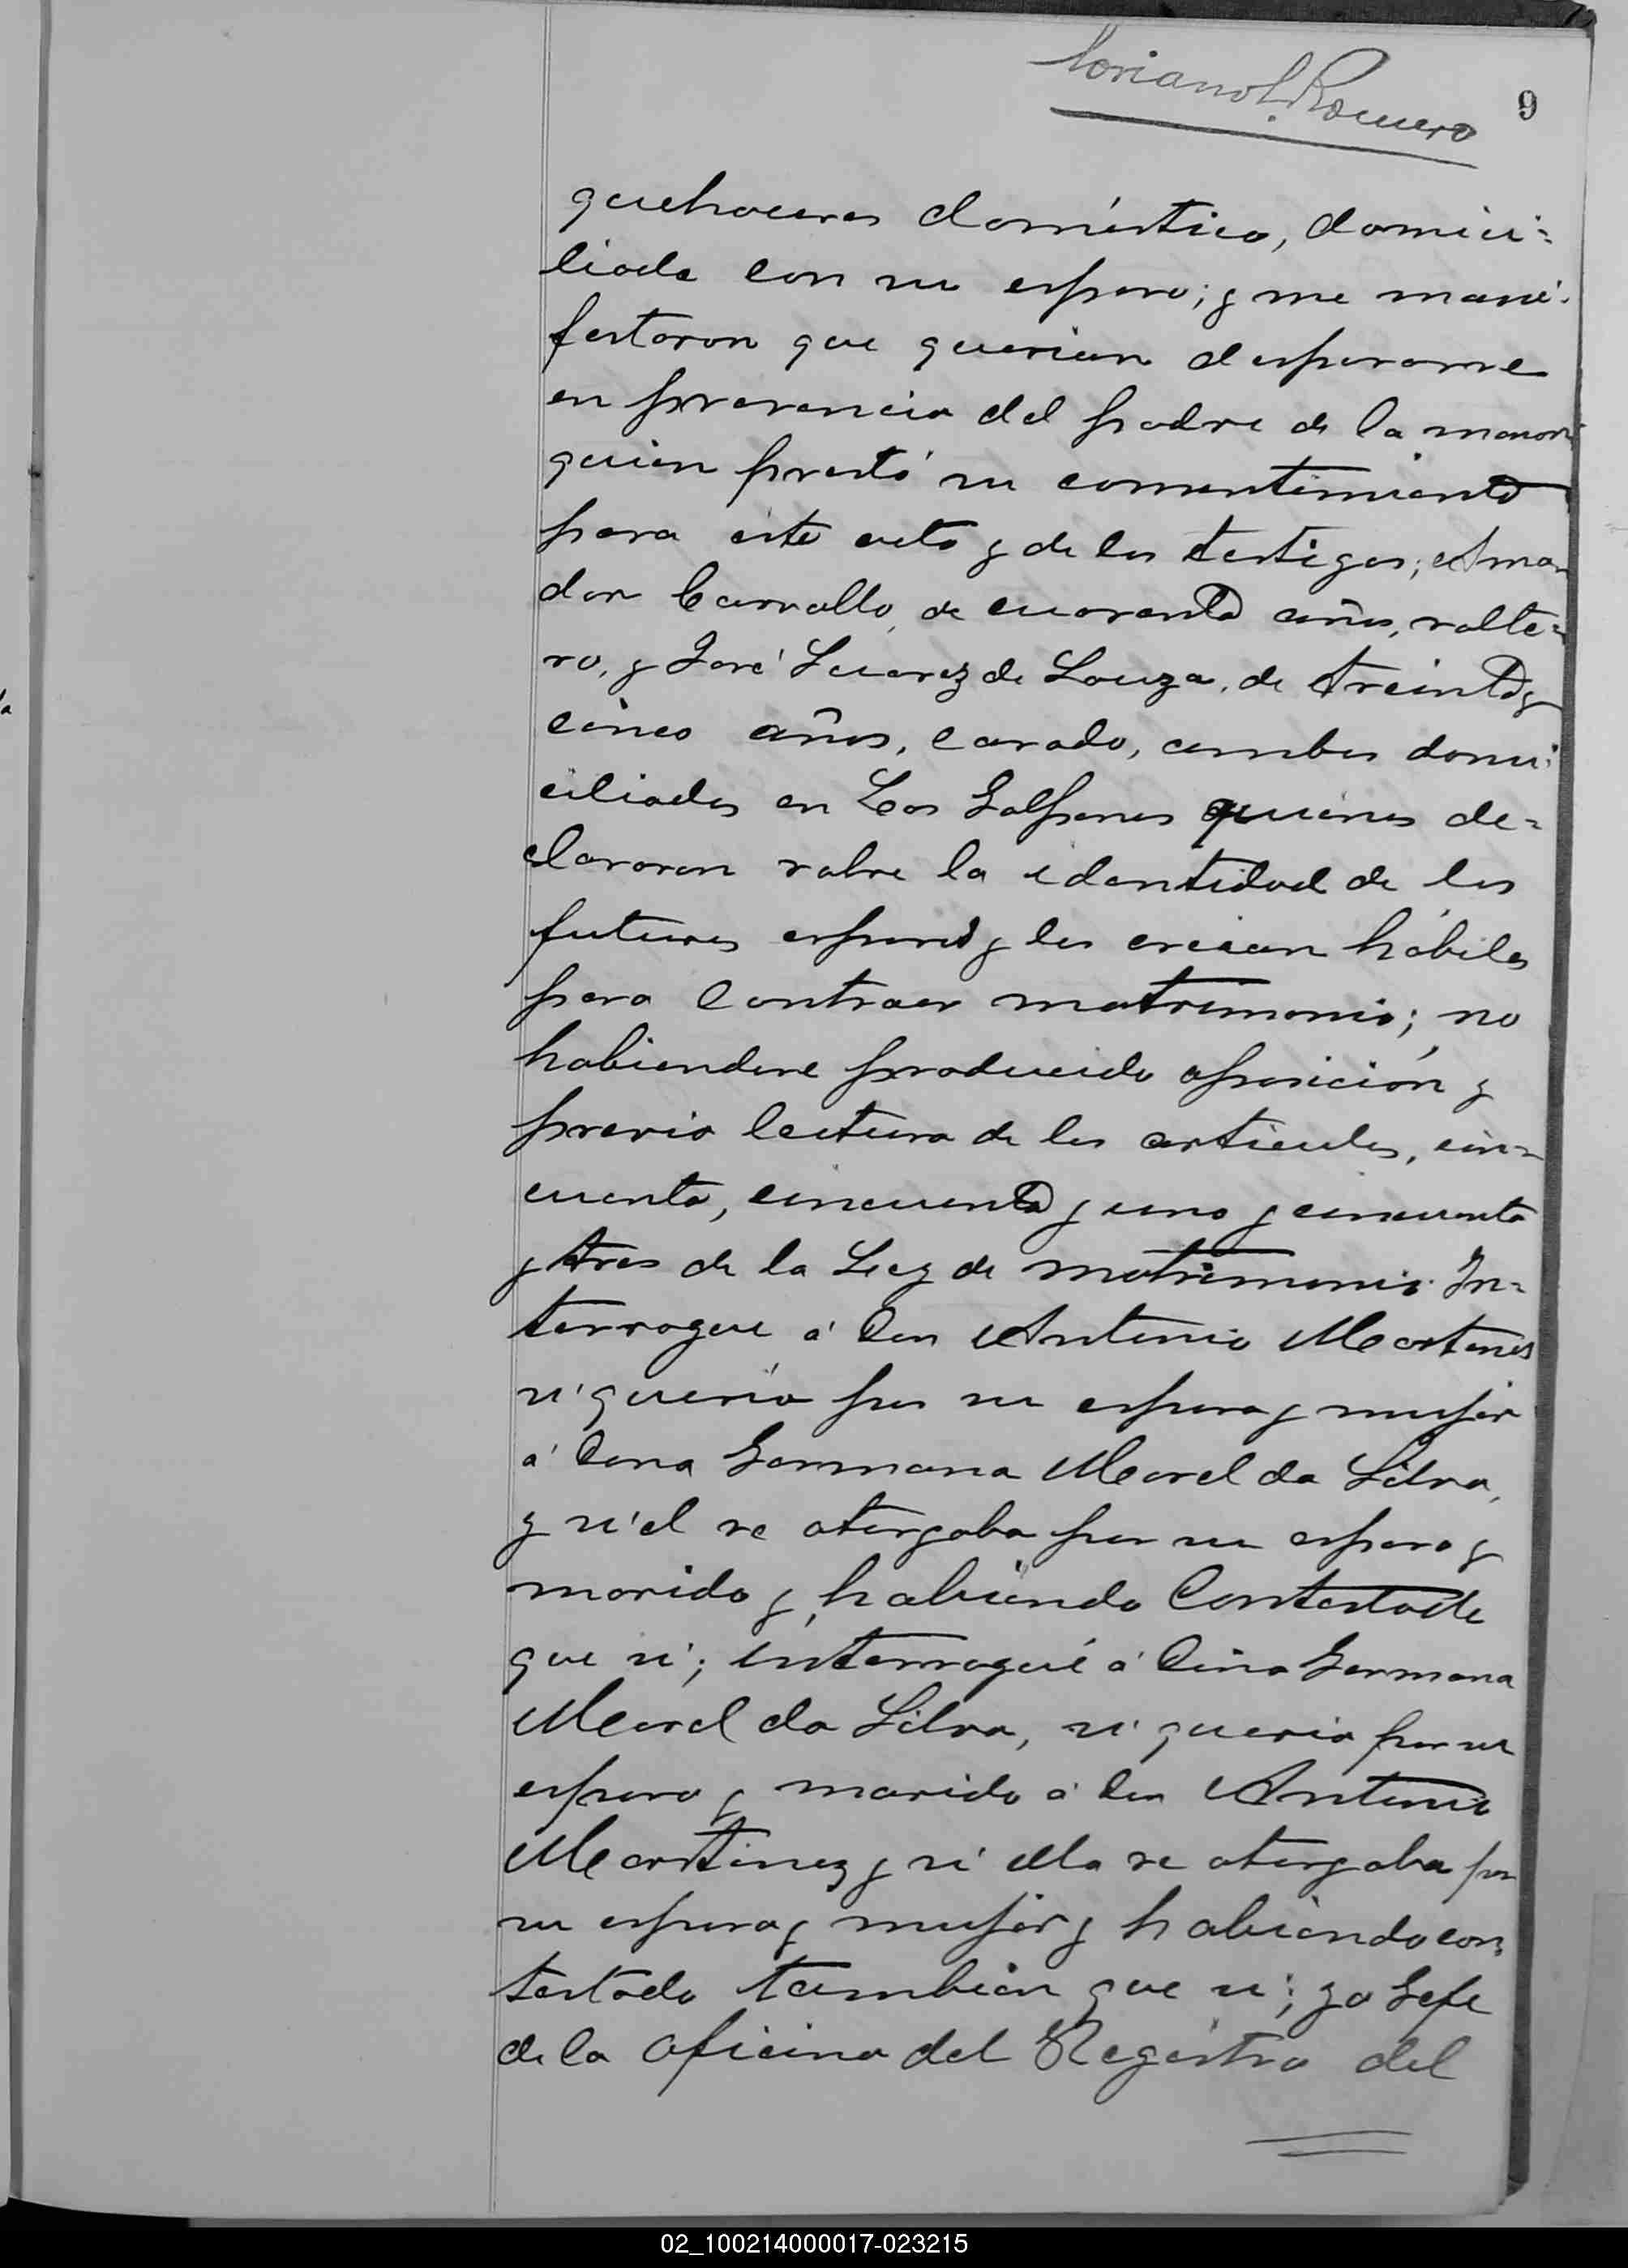 Soriano L. Romero
9
quehaceres doméstico, domici=
liada con su esposo; y me mani-
festaron que querian desposarse
en presencia del padre de la menor,
quien prestó su consentimiento
para este acto y de los testigos; Ama
dor Carvallo, de cuarenta años, solte=
ro, y José Suarez de Souza, de treinta y
cinco años, casado, ambos domi-
ciliados en Los Galpones quienes de=
clararon sobre la identidad de los
futuros esposos y los creian hábiles
para contraer matrimonio; no
habiendose producido oposición y
previa lectura de los articulos, cin=
cuenta, cincuenta y uno y cincuenta
y tres de la Ley de matrimonio. In=
terrogue á Don Antonio Martines
si queria por su esposa y mujer
á Dona Germana Morel da Silva,
y si él se otorgaba por su esposo y
marido y, habiendo Contestado
que si; interrogué á Dina Germana
Morel da Silva, si queria por su
esposo y marido á Don Antonio
Martinez y si ella se otorgaba por
su esposa y mujer y habiendo con=
testado tambien que si; yo Gefe
de la oficina del Registro del
02_100214000017-023215